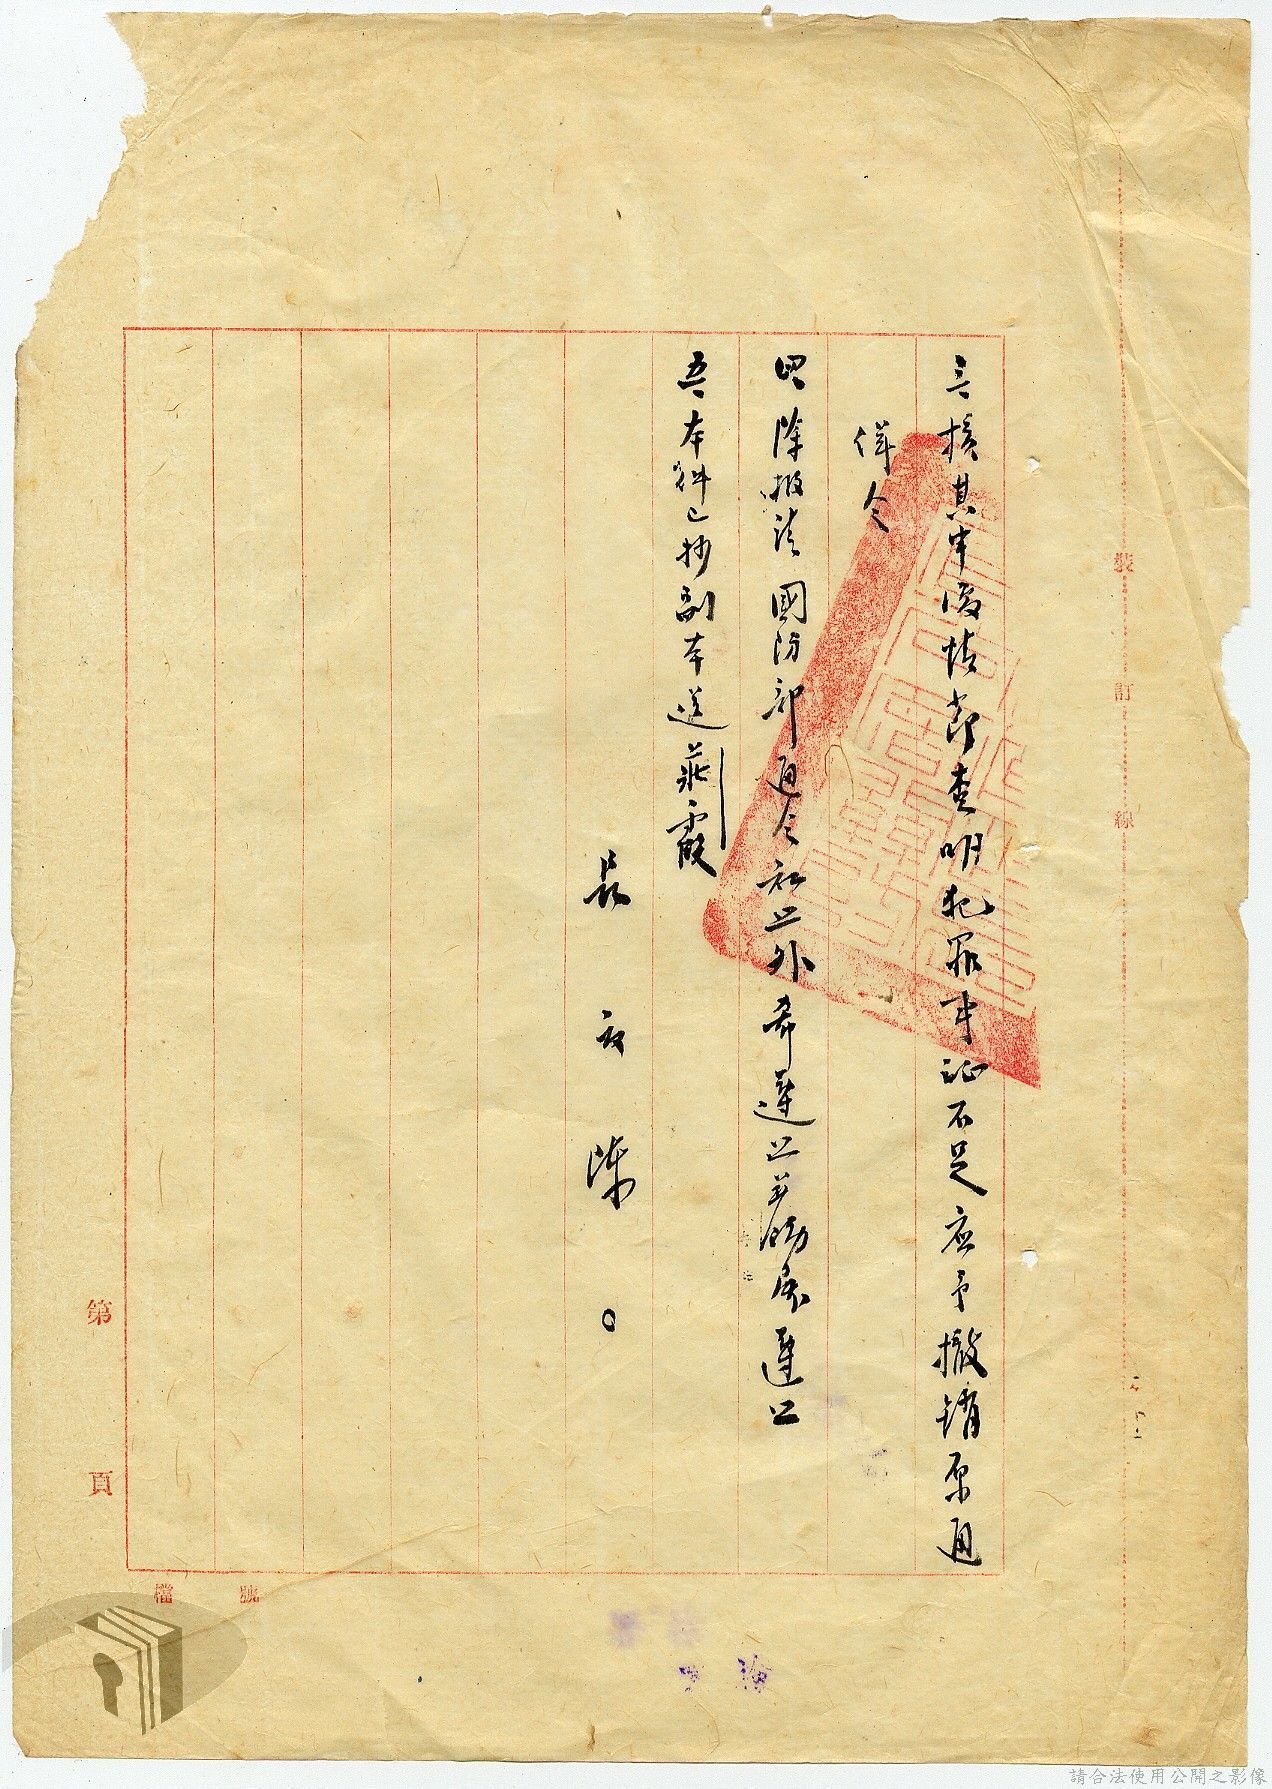 三、核其申復情節查明犯罪事証不足應予撤銷原通
緝令
四、除報請國防部通令知照外希遵照并飭屬遵照
五、本件已抄副本送蔡霞
長 陳 〇
裝 訂 線
第 頁
檔 號
請合法使用公開之影像